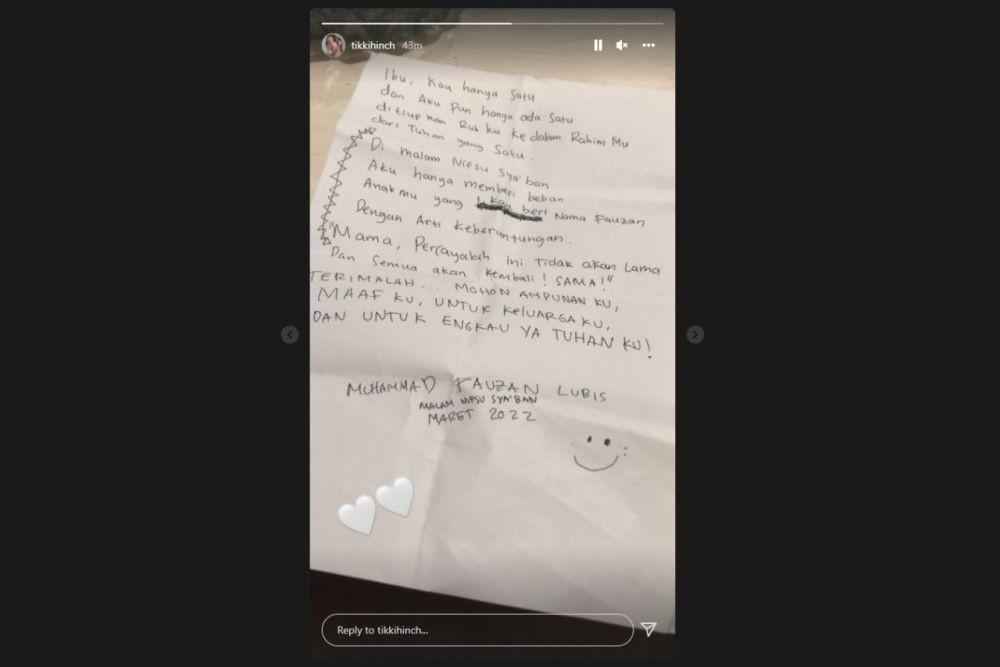 tikkihinch 43m
Ibu, Kau hanya Satu
dan Aku Pun hanya ada Satu
ditiupkan Ruh ku kedalam Rahim Mu
dari Tuhan yang Satu.
Di malam Nifsu Sya'ban
Aku hanya memberi beban
Anakmu yang kau beri Nama Fauzan
Dengan Arti Keberuntungan.
"Mama, Percayalah ini Tidak akan Lama
Dan Semua akan kembali! SAMA!"
TERIMALAH... MOHON AMPUNAN KU,
MAAF KU, UNTUK KELUARGA KU,
DAN UNTUK ENGKAU YA TUHAN KU!
MUHAMMAD FAUZAN LUBIS
MALAM NIFSU SYA'BAN
MARET 2022
Reply to tikkihinch...